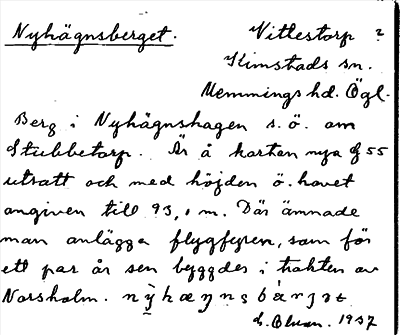 Nyhägnsberget. Vittestorp ?
Kimstads sn.
Memmings hd. Ögl.
Berg i Nyhägnshagen s.ö. om
Stubbetorp. Är å kartan nya 55
utsatt och med höjden ö. havet
angiven till 93,1 m. Där ämnade
man anlägga flygfyren, som för
ett par år sen byggdes i trakten av
Norsholm.
1937